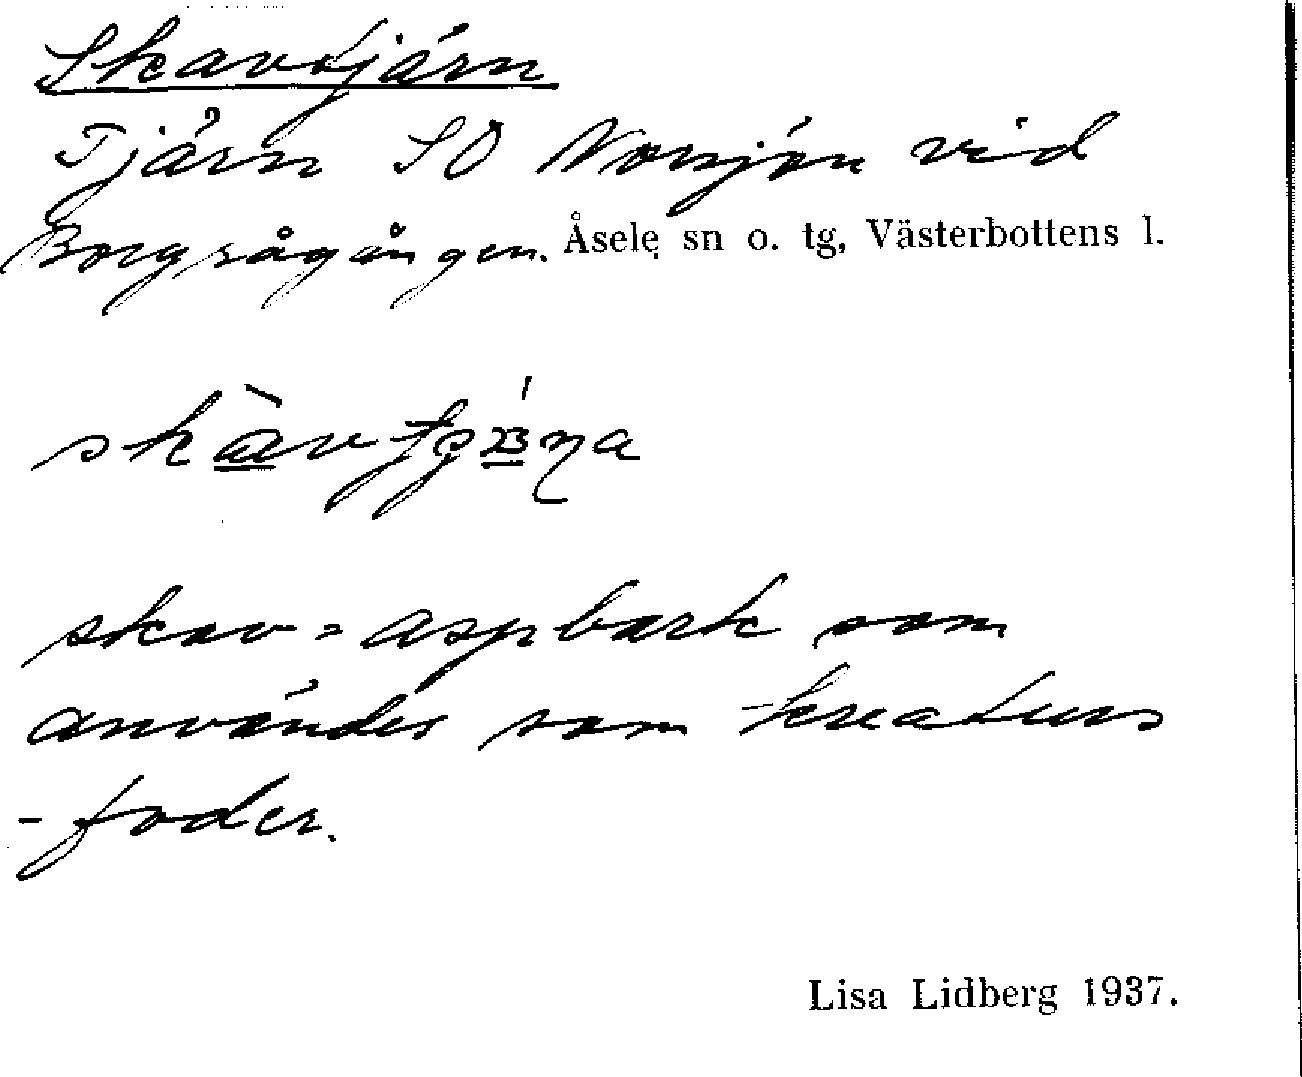 Skavtjärn
Tjärn SO Norsjön vid
Borgsrågången. Åsele sn o. tg, Västerbottens l.
skav = aspbark som
användes som kreaturs
-foder.
Lisa Lidberg 1937.